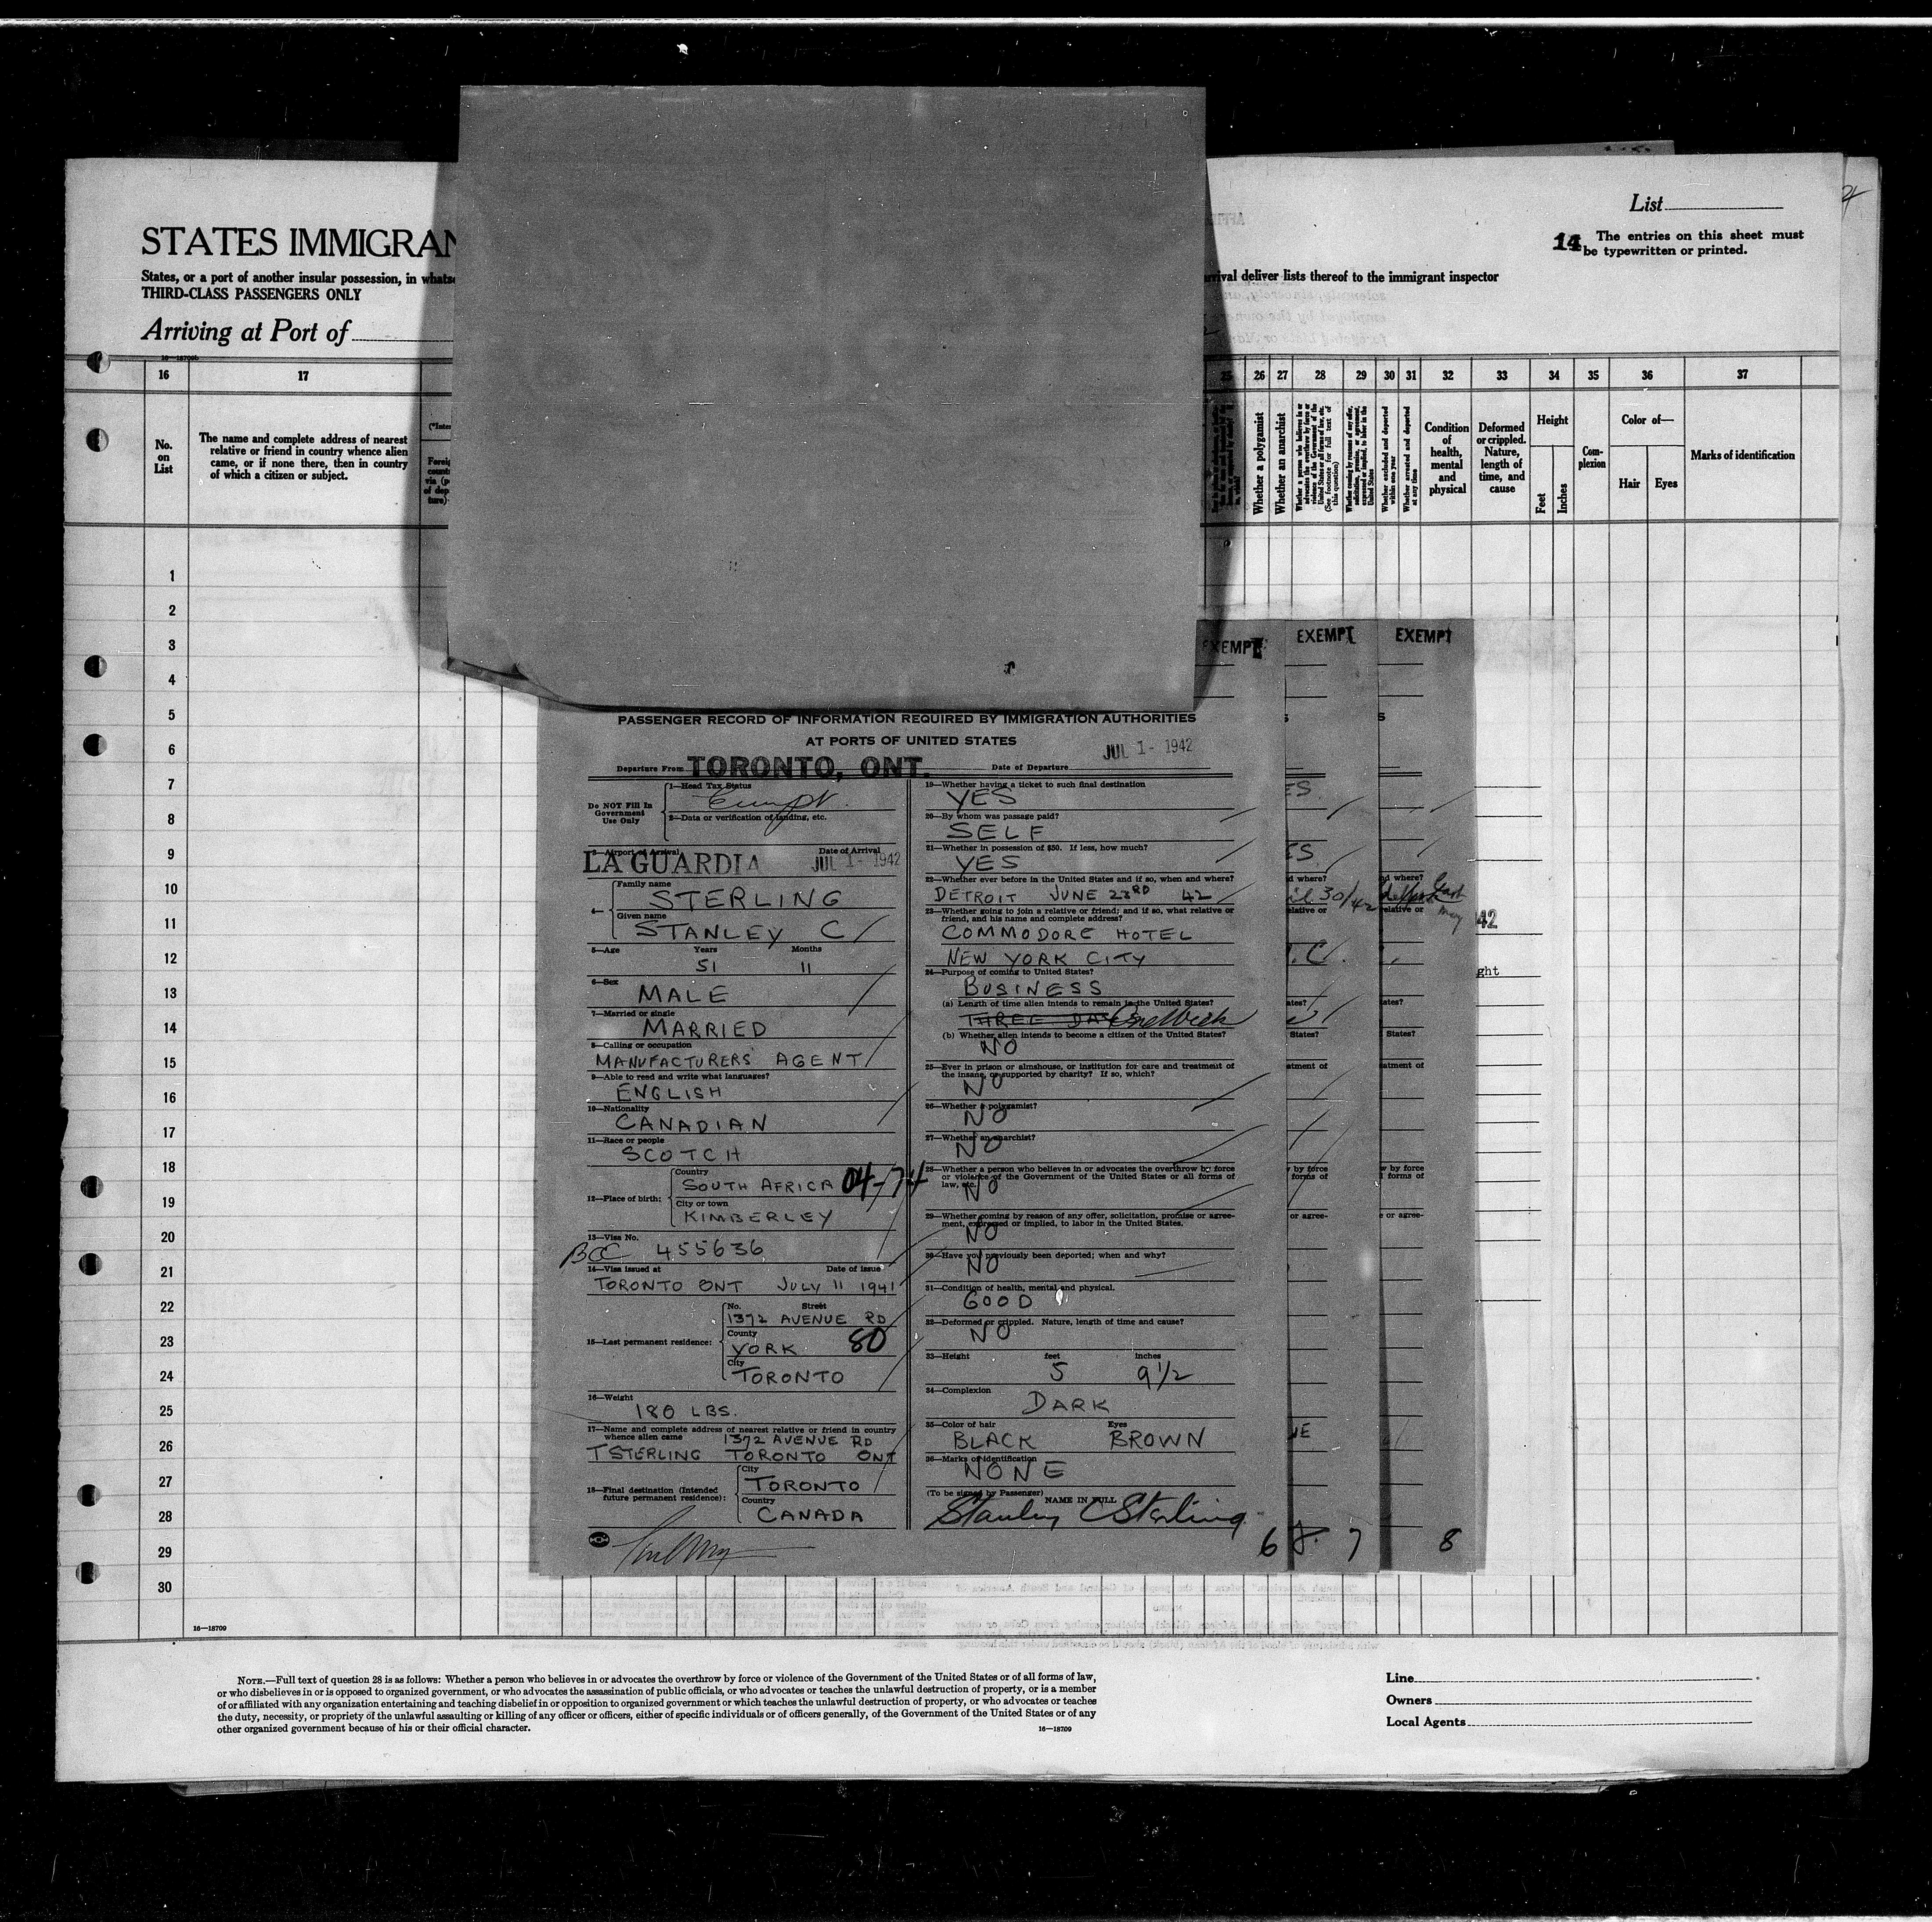 List
14 The entries on this sheet must
be typewritten or printed.
STATES IMMIGRAN
States, or a port of another insular possession, in whats
rrival deliver lists thereof to the immigrant inspector
THIRD-CLASS PASSENGERS ONLY
Arriving at Port of
16—18709b
16 17 25 26 27 28 29 30 31 32 33 34 35 36 37
No.
on
List
The name and complete address of nearest
relative or friend in country whence alien
came, or if none there, then in country
of which a citizen or subject.
(*Inte
Foreig
count
via (p
of dep
ture)
Whether a polygamist
Whether an anarchist
Whether a person who believes in or
advocates the overthrow by force or
violence of the Government of the
United States or all forms of law, etc.
(See footnote for full text of
this question)
Whether coming by reason of any offer,
solicitation, promise, or agreement,
expressed or implied, to labor in the
United States
Whether excluded and deported
within one year
Whether arrested and deported
at any time
Condition
of
health,
mental
and
physical
Deformed
or crippled.
Nature,
length of
time, and
cause
Height
Feet
Inches
Com-
plexion
Color of—
Hair Eyes
Marks of identification
1
2
3
4
5
6
7
8
9
10
11
12
13
14
15
16
17
18
19
20
21
22
23
24
25
26
27
28
29
30
EXEMPT EXEMPT EXEMPT
PASSENGER RECORD OF INFORMATION REQUIRED BY IMMIGRATION AUTHORITIES
AT PORTS OF UNITED STATES
Departure From TORONTO, ONT. Date of Departure JUL 1 - 1942
Do NOT Fill In
Government
Use Only
1—Head Tax Status
Exempt.
2—Data or verification of landing, etc.
3—Airport of Arrival Date of Arrival
LA GUARDIA JUL 1 - 1942
4—
Family name
STERLING
Given name
STANLEY C
5—Age Years Months
51 11
6—Sex
MALE
7—Married or single
MARRIED
8—Calling or occupation
MANUFACTURERS' AGENT
9—Able to read and write what languages?
ENGLISH
10—Nationality
CANADIAN
11—Race or people
SCOTCH
12—Place of birth:
Country
SOUTH AFRICA 04-74
City or town
KIMBERLEY
13—Visa No.
BCC 455636
14—Visa issued at Date of issue
TORONTO ONT JULY 11 1941
15—Last permanent residence:
No. Street
1372 AVENUE RD
County
YORK 80
City
TORONTO
16—Weight
180 LBS.
17—Name and complete address of nearest relative or friend in country
whence alien came 1372 AVENUE RD
T STERLING TORONTO ONT
18—Final destination (Intended
future permanent residence):
City
TORONTO
Country
CANADA
19—Whether having a ticket to such final destination
YES
20—By whom was passage paid?
SELF
21—Whether in possession of $50. If less, how much?
YES
22—Whether ever before in the United States and if so, when and where?
DETROIT JUNE 23RD 42
23—Whether going to join a relative or friend; and if so, what relative or
friend, and his name and complete address?
COMMODORE HOTEL
NEW YORK CITY
24—Purpose of coming to United States?
BUSINESS
(a) Length of time alien intends to remain in the United States?
THREE DAYS One Week
(b) Whether alien intends to become a citizen of the United States?
NO
25—Ever in prison or almshouse, or institution for care and treatment of
the insane, or supported by charity? If so, which?
NO
26—Whether a polygamist?
NO
27—Whether an anarchist?
NO
28—Whether a person who believes in or advocates the overthrow by force
or violence of the Government of the United States or all forms of
law, etc.
NO
29—Whether coming by reason of any offer, solicitation, promise or agree-
ment, expressed or implied, to labor in the United States.
NO
30—Have you previously been deported; when and why?
NO
31—Condition of health, mental and physical.
GOOD
32—Deformed or crippled. Nature, length of time and cause?
NO
33—Height feet inches
5 9 1/2
34—Complexion
DARK
35—Color of hair Eyes
BLACK BROWN
36—Marks of identification
NONE
(To be signed by Passenger) NAME IN FULL
Stanley C Sterling
6 7 8
ES
ES
d where? d where?
il 30/42
Last
May
42
elative or relative or
ght
ates? ates?
States? States?
atment of atment of
by force w by force
forms of l forms of
or agree- e or agree-
16—18709
NOTE.—Full text of question 28 is as follows: Whether a person who believes in or advocates the overthrow by force or violence of the Government of the United States or of all forms of law,
or who disbelieves in or is opposed to organized government, or who advocates the assassination of public officials, or who advocates or teaches the unlawful destruction of property, or is a member
of or affiliated with any organization entertaining and teaching disbelief in or opposition to organized government or which teaches the unlawful destruction of property, or who advocates or teaches
the duty, necessity, or propriety of the unlawful assaulting or killing of any officer or officers, either of specific individuals or of officers generally, of the Government of the United States or of any
other organized government because of his or their official character.
16—18709
Line
Owners
Local Agents